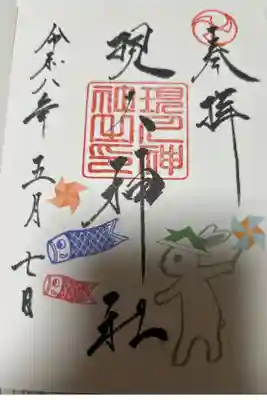 奉拝
現人神社
現人神
社之印
令和八年 五月 七日